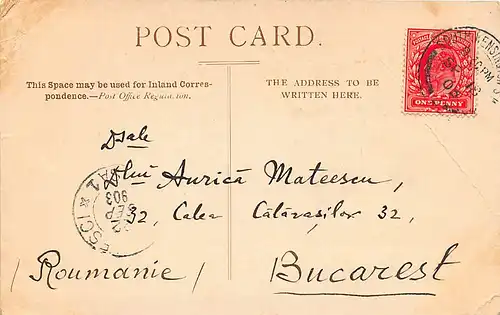 POST CARD.
This Space may be used for Inland Corres-
pondence.—Post Office Regulation.
THE ADDRESS TO BE
WRITTEN HERE.
ONE PENNY
Dsale
Dlui Aurică Mateescu,
32, Calea Călărașilor 32,
/ Roumanie /
Bucarest
SEP
903